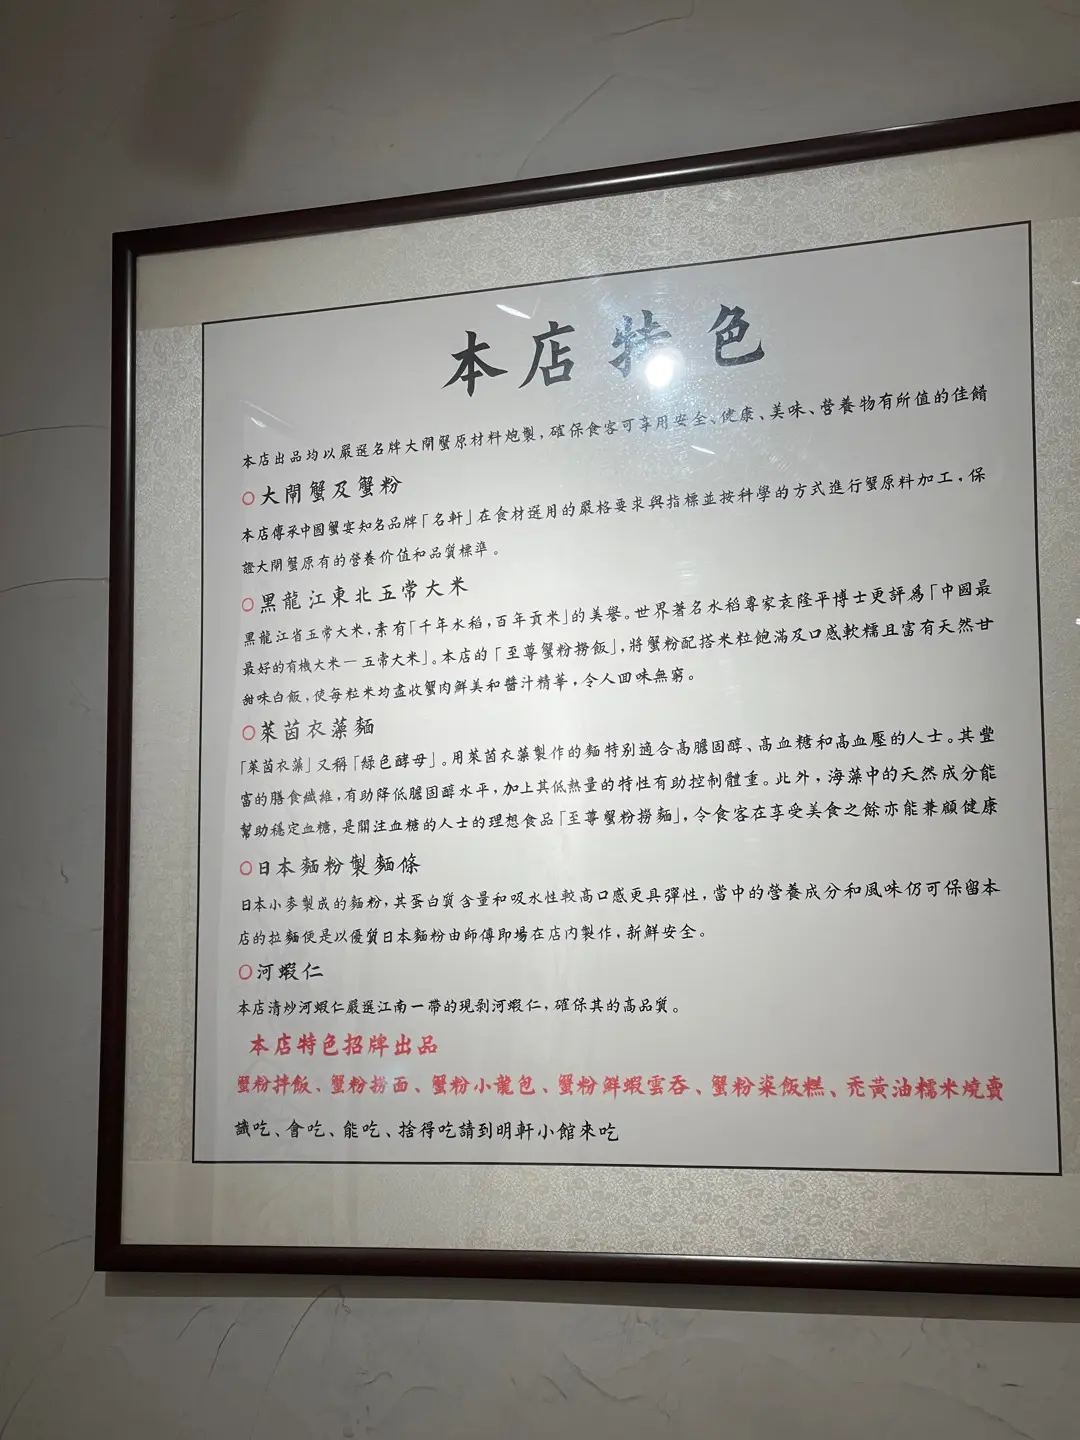 本店特色
本店出品均以嚴選名牌大閘蟹原材料炮製，確保食客可享用安全、健康、美味、營養物有所值的佳餚
○大閘蟹及蟹粉
本店傳承中國蟹宴知名品牌「名軒」在食材選用的嚴格要求與指標並按科學的方式進行蟹原料加工，保
證大閘蟹原有的營養价值和品質標準。
○黑龍江東北五常大米
黑龍江省五常大米，素有「千年水稻，百年貢米」的美譽。世界著名水稻專家袁隆平博士更評爲「中國最
最好的有機大米—五常大米」。本店的「至尊蟹粉撈飯」，將蟹粉配搭米粒飽滿及口感軟糯且富有天然甘
甜味白飯，使每粒米均盡收蟹肉鮮美和醬汁精華，令人回味無窮。
○萊茵衣藻麵
「萊茵衣藻」又稱「綠色酵母」。用萊茵衣藻製作的麵特别適合高膽固醇、高血糖和高血壓的人士。其豐
富的膳食纖維，有助降低膽固醇水平，加上其低熱量的特性有助控制體重。此外，海藻中的天然成分能
幫助穩定血糖，是關注血糖的人士的理想食品「至尊蟹粉撈麵」，令食客在享受美食之餘亦能兼顧健康
○日本麵粉製麵條
日本小麥製成的麵粉，其蛋白質含量和吸水性較高口感更具彈性，當中的營養成分和風味仍可保留本
店的拉麵便是以優質日本麵粉由師傅即場在店内製作，新鮮安全。
○河蝦仁
本店清炒河蝦仁嚴選江南一帶的現剝河蝦仁，確保其的高品質。
本店特色招牌出品
蟹粉拌飯、蟹粉撈面、蟹粉小龍包、蟹粉鮮蝦雲吞、蟹粉粢飯糕、禿黃油糯米燒賣
識吃、會吃、能吃、捨得吃請到明軒小館來吃